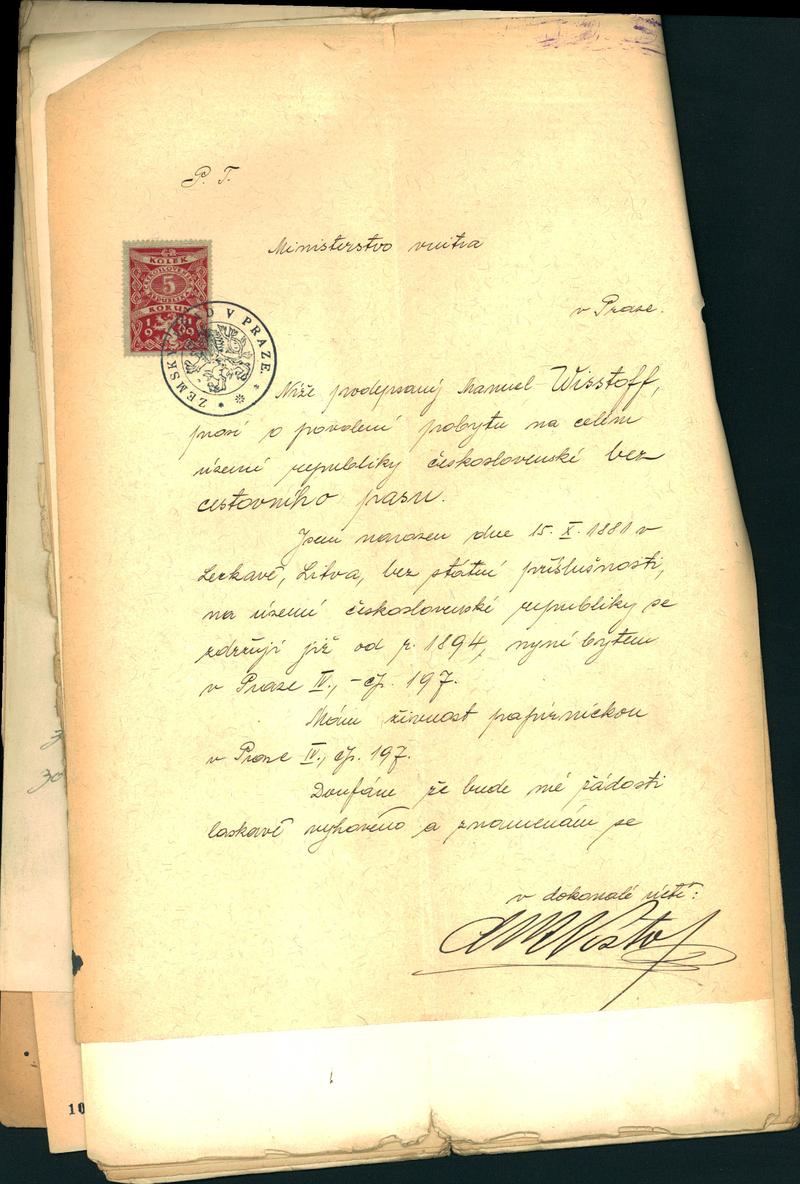 P. T.
Ministerstvo vnitra
v Praze.
KOLEK
5
KORUN
1919
ZEMSKÝ ÚŘAD V PRAZE.
Níže podepsaný Manuel Wisstoff,
prosí o povolení pobytu na celém
území republiky československé bez
cestovního pasu.
Jsem narozen dne 15. X. 1881 v
Leckavě, Litva, bez státní příslušnosti,
na území československé republiky se
zdržuji již od r. 1894, nyní bytem
v Praze IV., - čp. 197.
Mám živnost papírnickou
v Praze IV., čp. 197.
Doufám že bude mé žádosti
laskavě vyhověno a znamenám se
v dokonalé úctě:
10